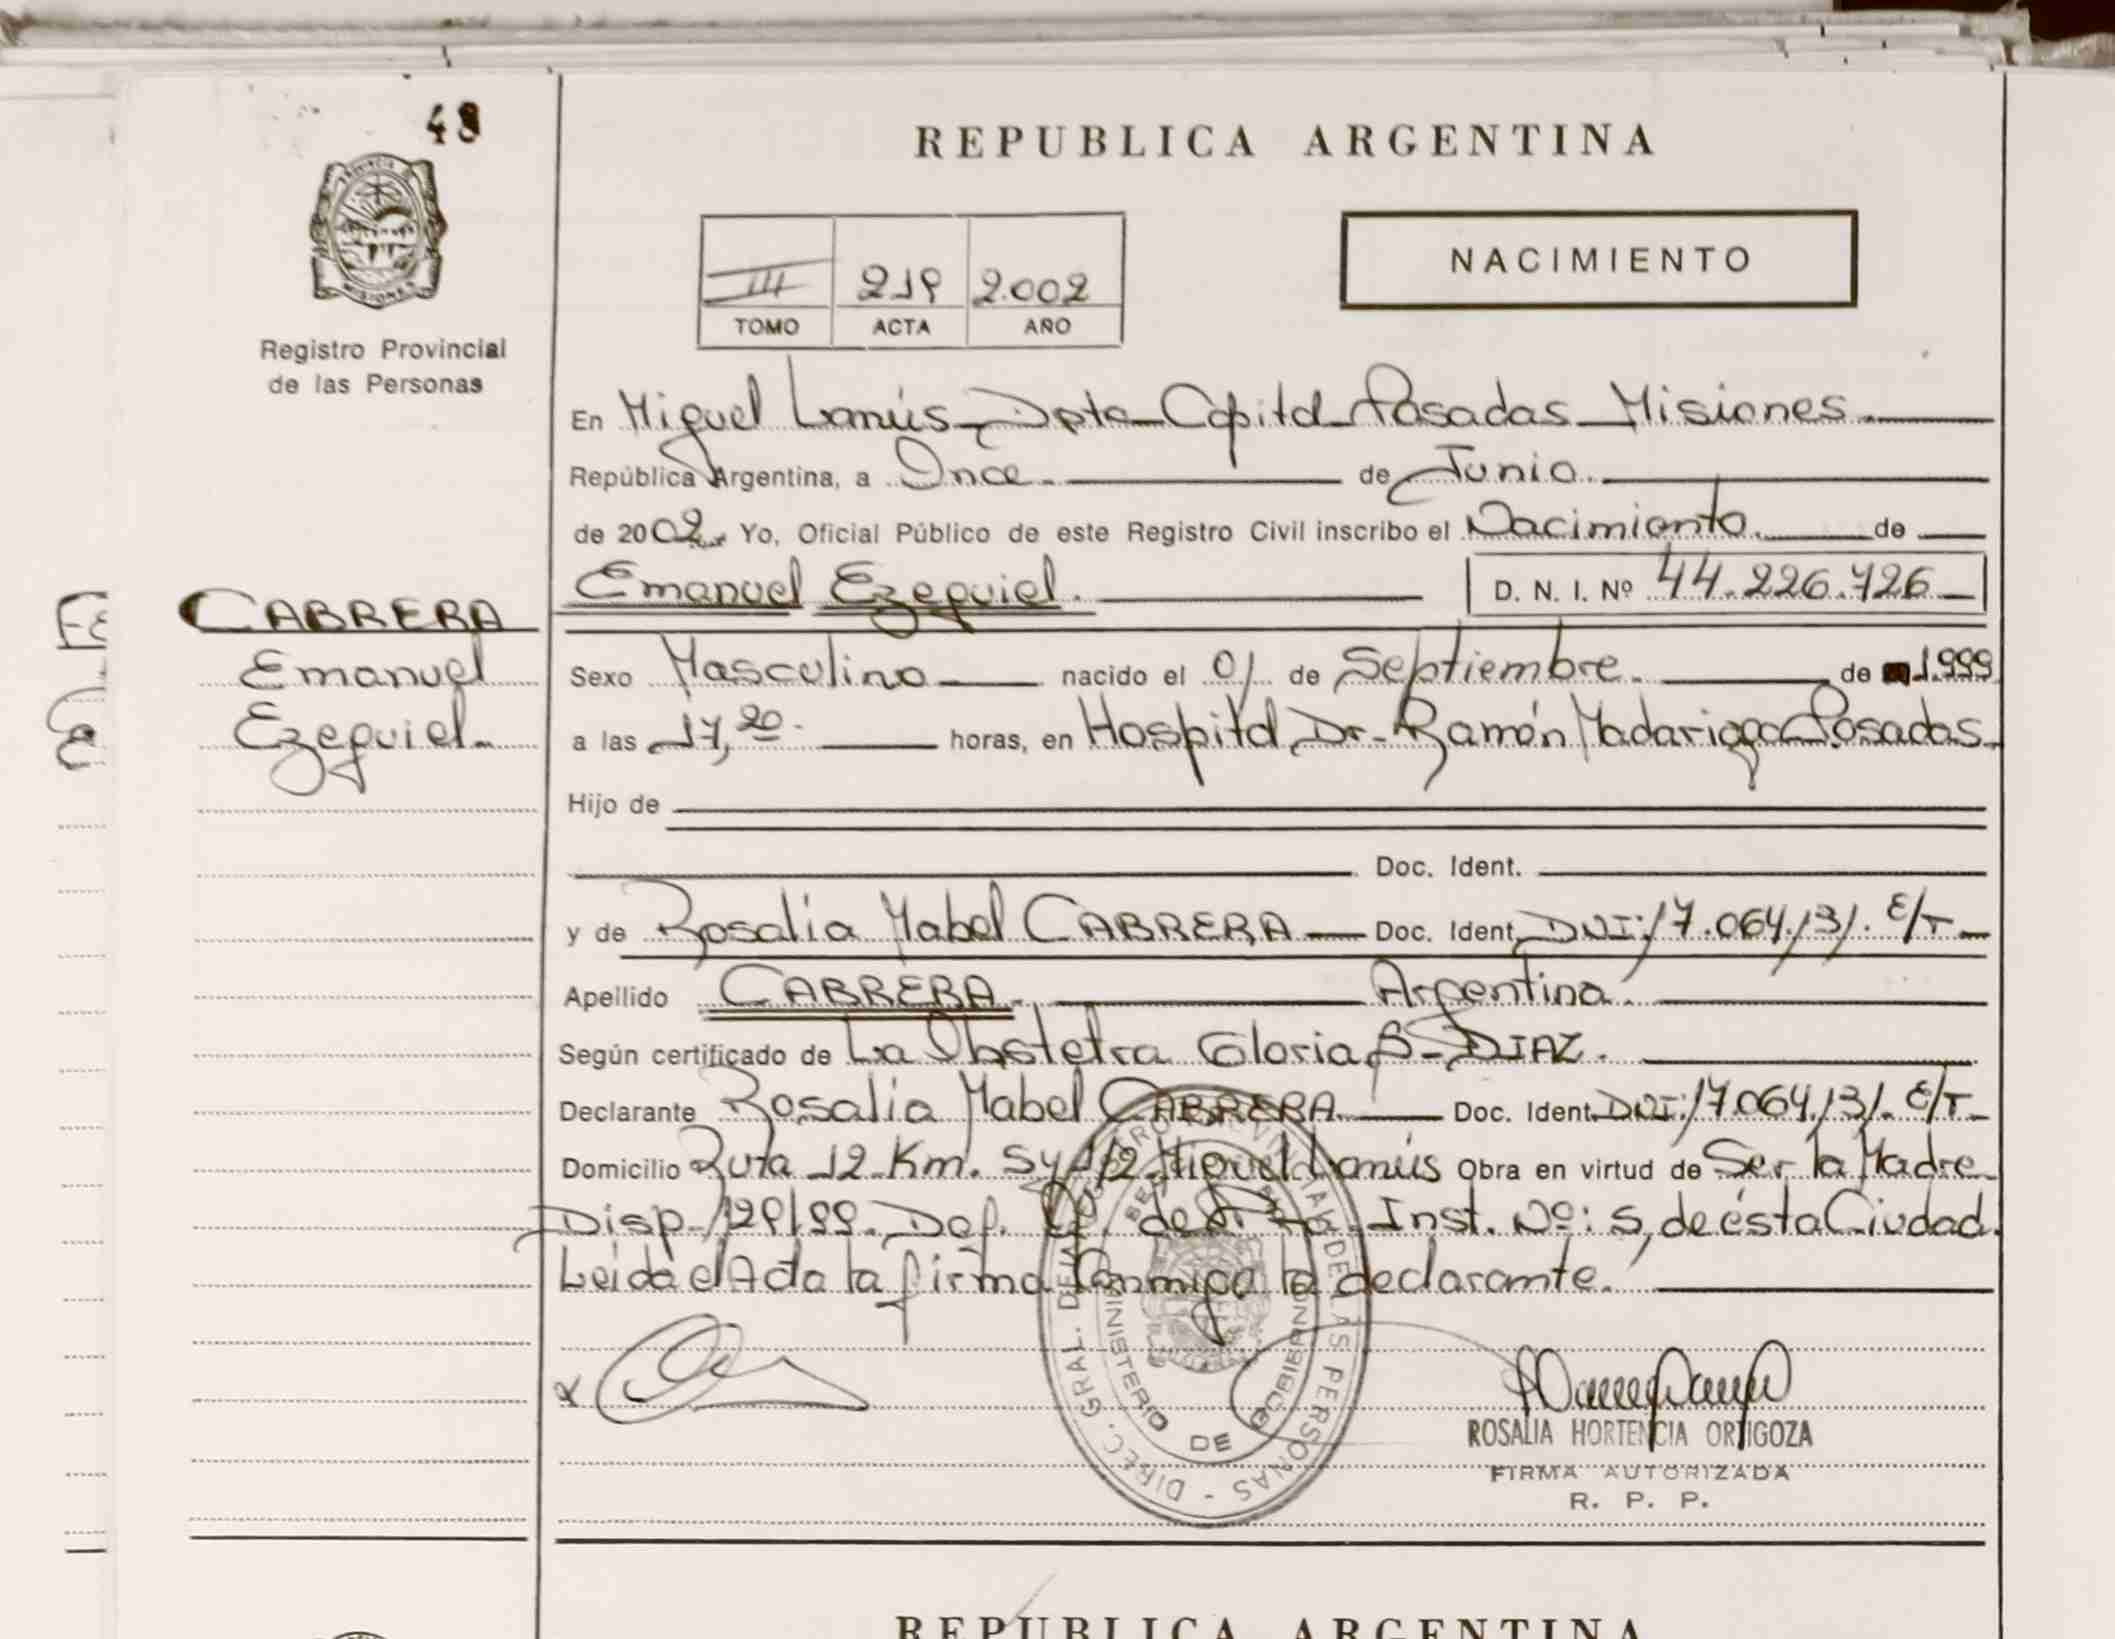 48
PROVINCIA
MISIONES
Registro Provincial
de las Personas
REPUBLICA ARGENTINA
NACIMIENTO
III 219 2.002
TOMO ACTA AÑO
En Miguel Lanús - Dpto Capital Posadas Misiones.
República Argentina, a Once de Junio
de 2002 Yo, Oficial Público de este Registro Civil inscribo el Nacimiento de
Emanuel Ezequiel. D. N. I. Nº 44.226.726
CABRERA
Emanuel
Ezequiel
Sexo Masculino nacido el 01 de Septiembre de 1.999
a las 17,20 horas, en Hospital Dr. Ramón Madariaga Posadas
Hijo de
Doc. Ident.
y de Rosalia Mabel CABRERA Doc. Ident. DNI: 17.064.131. E/T
Apellido CABRERA Argentina.
Según certificado de La Obstetra Gloria B. DIAZ.
Declarante Rosalia Mabel CABRERA Doc. Ident. DNI: 17.064.131. E/T
Domicilio Ruta 12 Km. 1/2 Miguel Lanús Obra en virtud de Ser la Madre
Disp. 129/99. Def. Of. de Inst. Nº: 5, de ésta Ciudad.
Leida el Acta la firma Conmigo la declarante.
DIREC. GRAL. DEL REGISTRO PROVINCIAL DE LAS PERSONAS -
MINISTERIO DE GOBIERNO
ROSALIA HORTENCIA ORTIGOZA
FIRMA AUTORIZADA
R. P. P.
REPUBLICA ARGENTINA